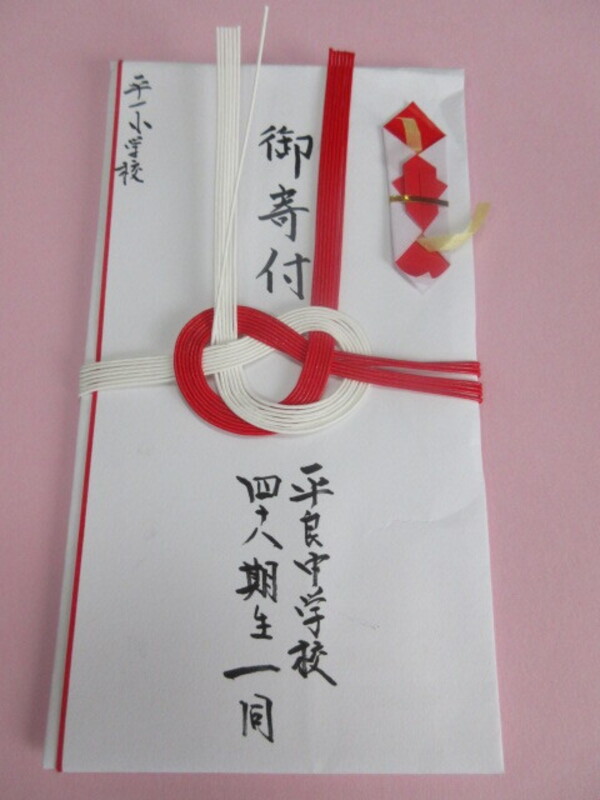 御寄付
平良中学校
四十八期生一同
平一小学校